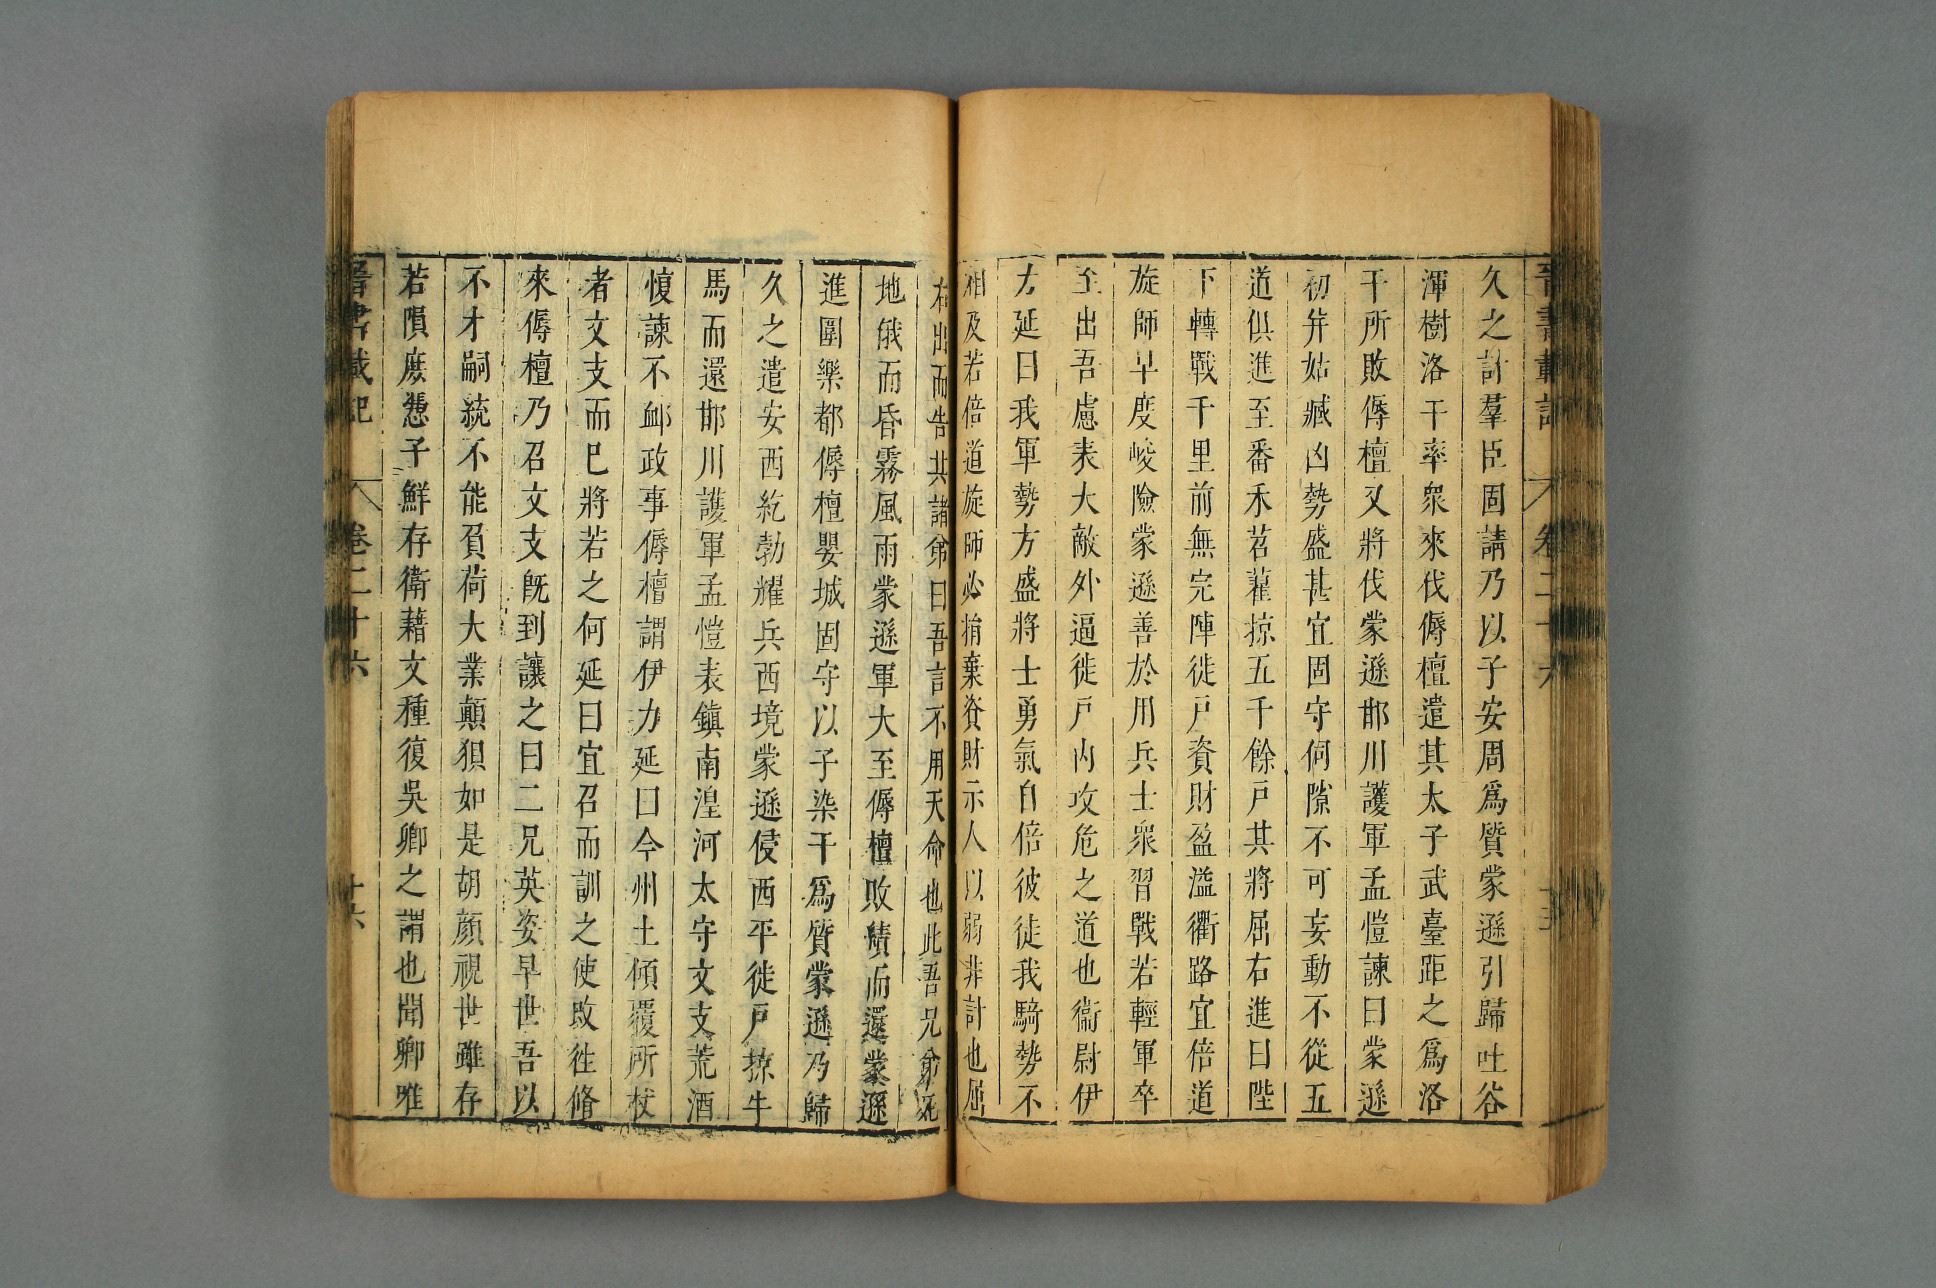 晉書載記 卷二十六 十五
久之計羣臣固請乃以子安周爲質蒙遜引歸吐谷
渾樹洛干率衆來伐傉檀遣其太子武臺距之爲洛
干所敗傉檀又將伐蒙遜邯川護軍孟愷諫曰蒙遜
初并姑臧凶勢盛甚宜固守伺隙不可妄動不從五
道俱進至番禾苕藋掠五千餘戶其將屈右進曰陛
下轉戰千里前無完陣徙戶資財盈溢衢路宜倍道
旋師早度峻險蒙遜善於用兵士衆習戰若輕軍卒
至出吾慮表大敵外逼徙戶內攻危之道也衞尉伊
力延曰我軍勢方盛將士勇氣自倍彼徒我騎勢不
相及若倍道旋師必捐棄資財示人以弱非計也屈
右出而告其諸弟曰吾言不用天命也此吾兄弟死
地俄而昏霧風雨蒙遜軍大至傉檀敗績而還蒙遜
進圍樂都傉檀嬰城固守以子染干爲質蒙遜乃歸
久之遣安西紇勃耀兵西境蒙遜侵西平徙戶掠牛
馬而還邯川護軍孟愷表鎮南湟河太守文支荒酒
愎諫不衈政事傉檀謂伊力延曰今州土傾覆所杖
者文支而已將若之何延曰宜召而訓之使改往脩
來傉檀乃召文支旣到讓之曰二兄英姿早世吾以
不才嗣統不能負荷大業顛狽如是胡顏視世雖存
若隕庶憑子鮮存衛藉文種復吳卿之謂也聞卿唯
晉書載記 卷二十六 十六